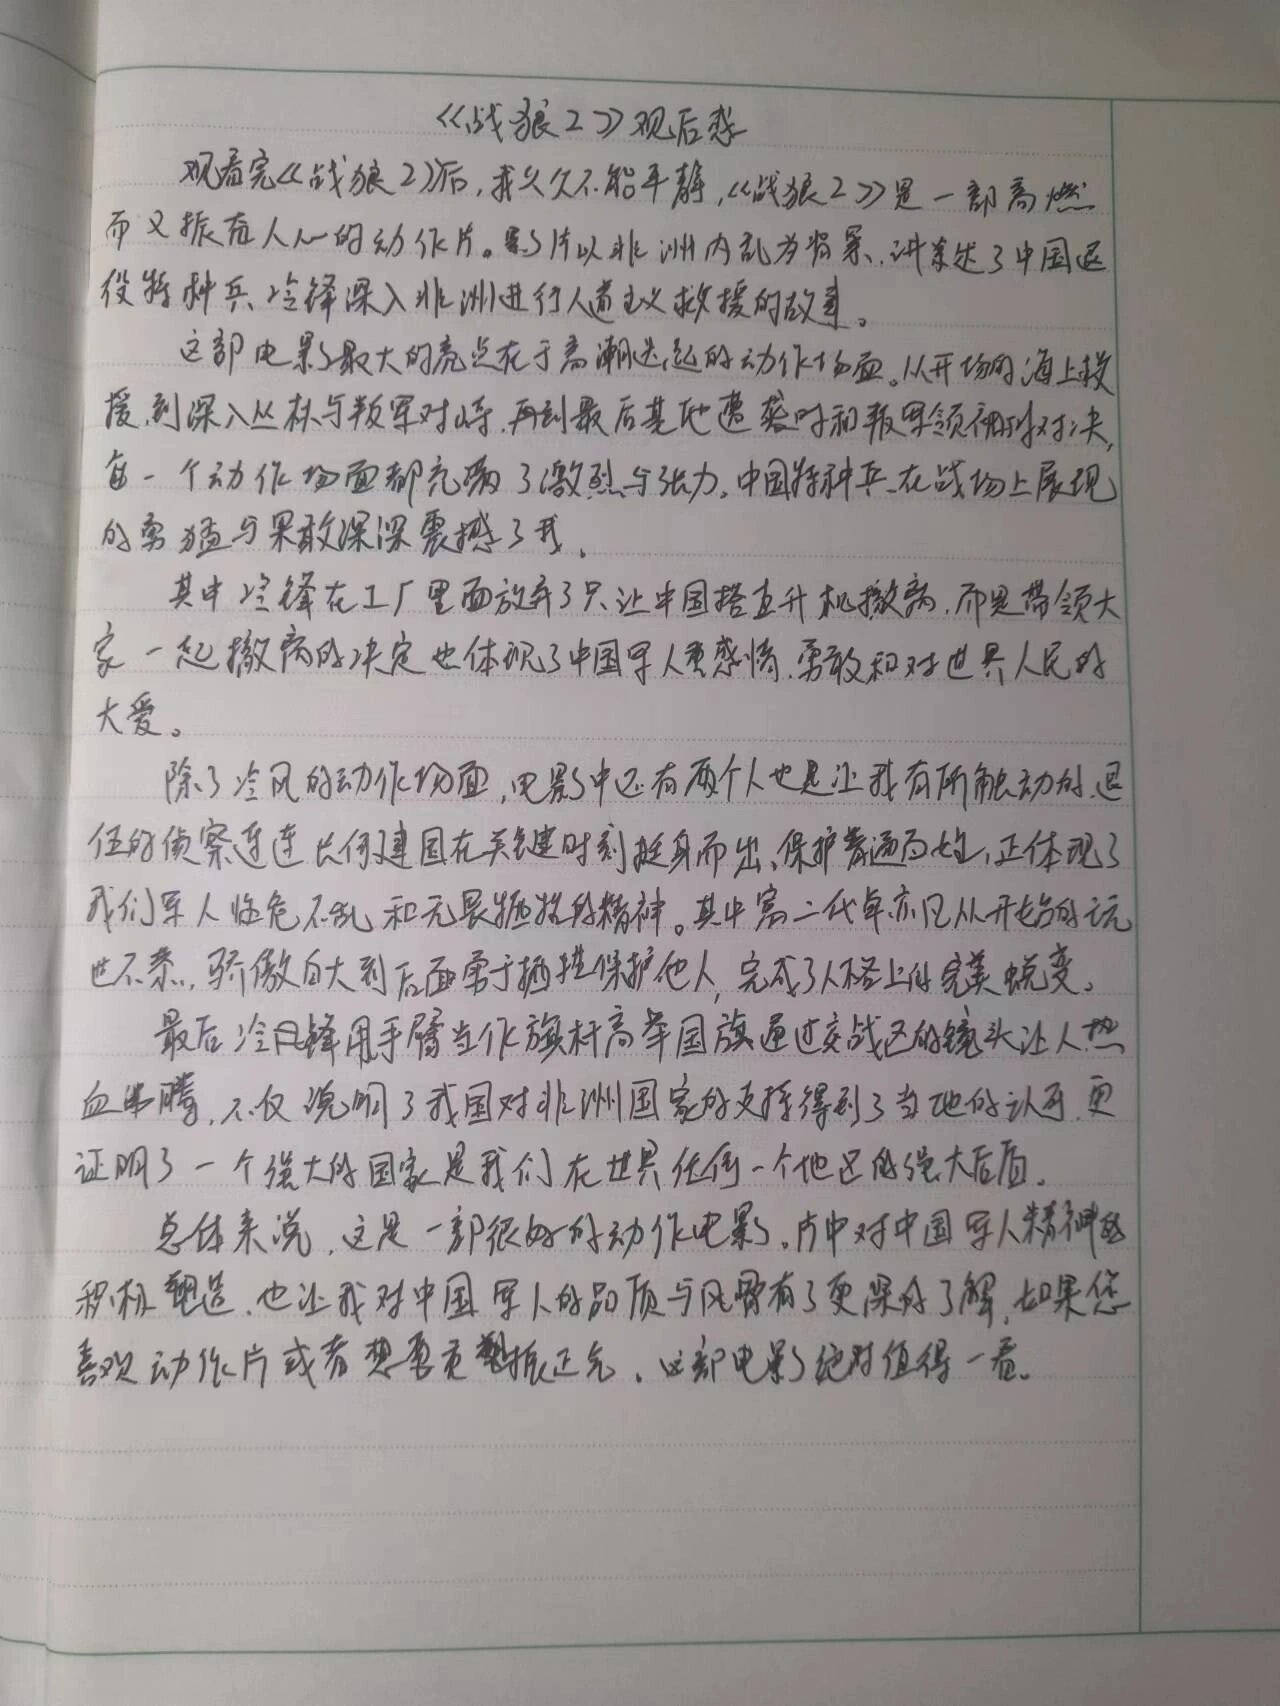 《战狼2》观后感
观看完《战狼2》后,我久久不能平静,《战狼2》是一部高燃
而又振奋人心的动作片。影片以非洲内乱为背景,讲述了中国退
役特种兵冷锋深入非洲进行人道主义救援的故事。
这部电影最大的亮点在于高潮迭起的动作场面。从开场的海上救
援,到深入丛林与叛军对峙,再到最后基地遭袭时和叛军领袖的对决,
每一个动作场面都充满了激烈与张力。中国特种兵在战场上展现
的勇猛与果敢深深震撼了我。
其中冷锋在工厂里面放弃了只让中国搭直升机撤离,而是带领大
家一起撤离的决定也体现了中国军人重感情,勇敢和对世界人民的
大爱。
除了冷风的动作场面,电影中还有两个人也是让我有所触动的,退
伍的侦察连连长何建国在关键时刻挺身而出、保护普通百姓,正体现了
我们军人临危不乱和无畏牺牲的精神。其中富二代卓亦凡从开始的玩
世不恭,骄傲自大到后面勇于牺牲保护他人,完成了人格上的完美蜕变。
最后冷锋用手臂当作旗杆高举国旗通过交战区的镜头让人热
血沸腾,不仅说明了我国对非洲国家的支持得到了当地的认可,更
证明了一个强大的国家是我们在世界任何一个地区的强大后盾。
总体来说,这是一部很好的动作电影。片中对中国军人精神的
积极塑造,也让我对中国军人的品质与风骨有了更深的了解,如果您
喜欢动作片或者想要重振正气,这部电影绝对值得一看。